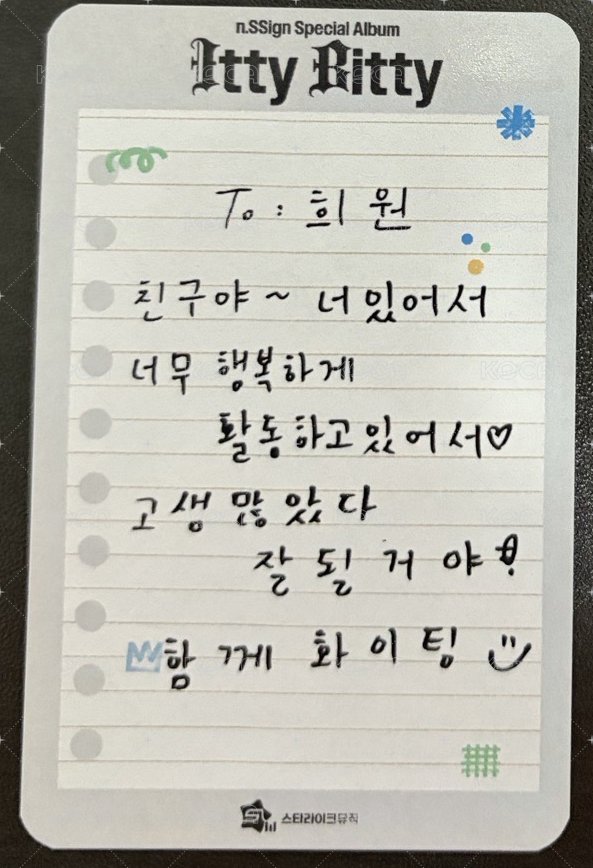 n.SSign Special Album
Itty Bitty
To : 희원
친구야 ~ 너있어서
너무 행복하게
활동하고있어서♡
고생 많았다
잘 될 거야!
함께 화이팅
스타라이크뮤직